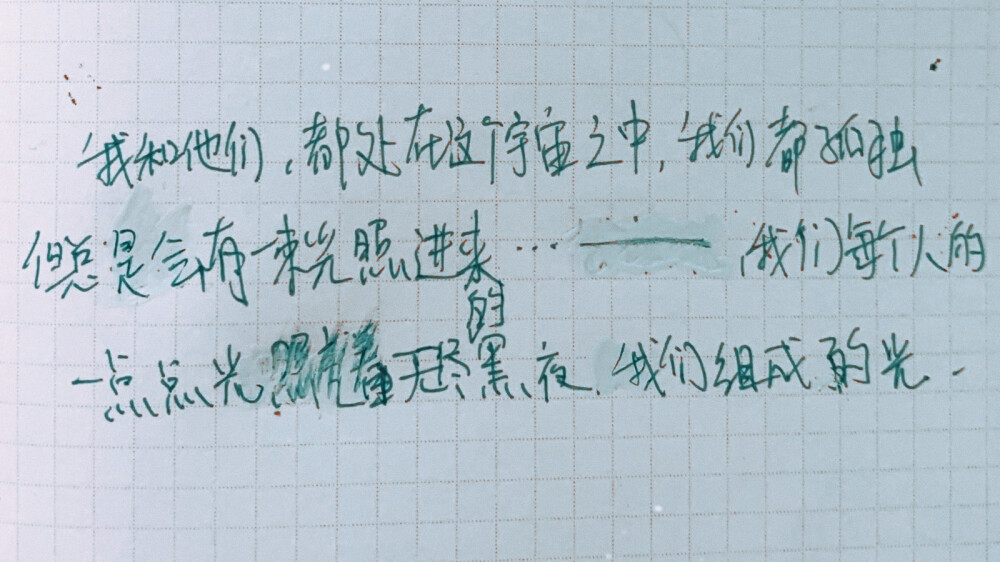 我和他们，都处在这个宇宙之中，我们都孤独
但总是会有一束光照进来…——我们每个人的
一点点光照着无尽的黑夜，我们组成的光。